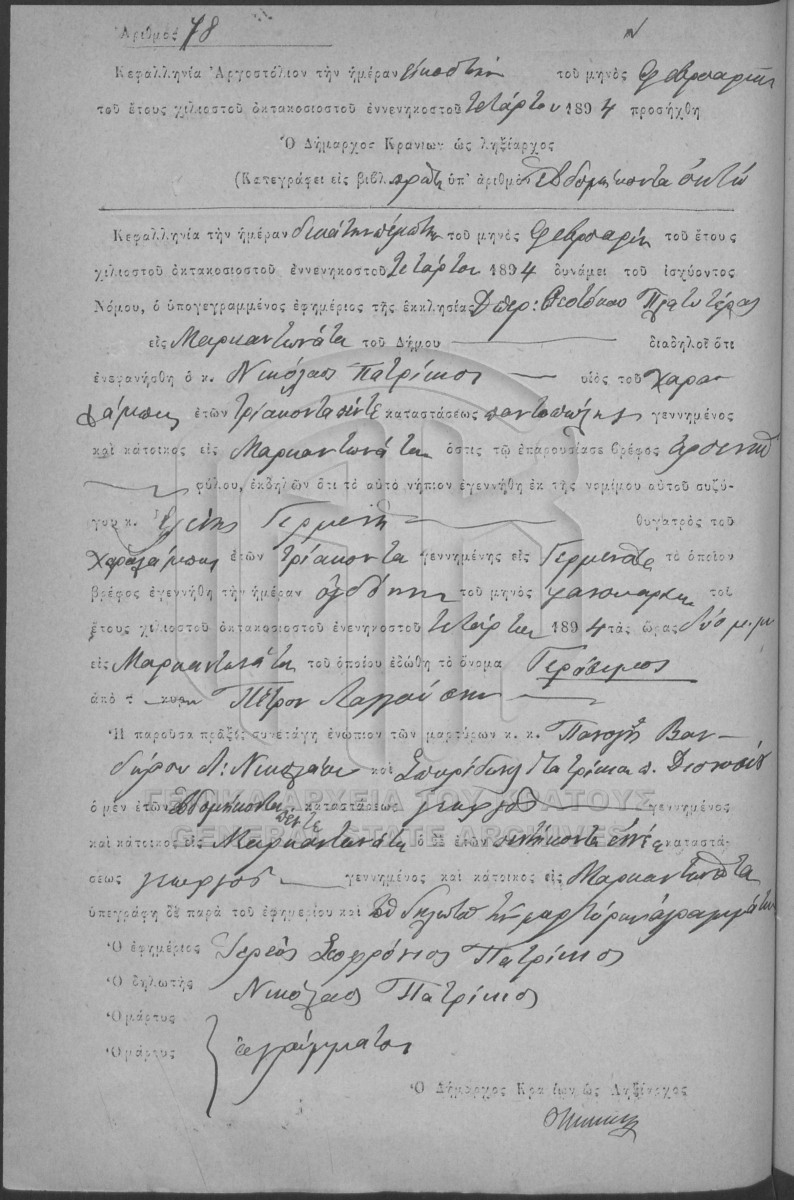 Ἀριθμὸς 78
Κεφαλληνία Ἀργοστόλιον τὴν ἡμέραν εἰκοστὴν τοῦ μηνὸς Φεβρουαρίου
τοῦ ἔτους χιλιοστοῦ ὀκτακοσιοστοῦ ἐννενηκοστοῦ τετάρτου 1894 προσήχθη
Ὁ Δήμαρχος Κρανίων ὡς ληξίαρχος
(Κατεγράφει εἰς βιβλ. πρᾶξ ὑπ' ἀριθμὸν Ἑβδομήκοντα ὀκτὼ
Κεφαλληνία τὴν ἡμέραν δεκάτην πέμπτην τοῦ μηνὸς Φεβρουαρίου τοῦ ἔτους
χιλιοστοῦ ὀκτακοσιοστοῦ ἐννενηκοστοῦ τετάρτου 1894 δυνάμει τοῦ ἰσχύοντος
Νόμου, ὁ ὑπογεγραμμένος ἐφημέριος τῆς ἐκκλησίας Ὑπερ: Θεοτόκου Πλατυτέρας
εἰς Μαρκαντωνάτα τοῦ Δήμου διαδηλοῖ ὅτι
ἐνεφανήσθη ὁ κ. Νικόλαος Πατρίκιος υἱὸς τοῦ Χαρα
λάμπους ἐτῶν τριάκοντα πέντε καταστάσεως παντοπώλης γεννημένος
καὶ κάτοικος εἰς Μαρκαντωνάτα ὅστις τῷ ἐπαρουσίασε βρέφος ἀρσενικοῦ
φύλου, ἐκδηλῶν ὅτι τὸ αὐτὸ νήπιον ἐγεννήθη ἐκ τῆς νομίμου αὐτοῦ συζύ-
γου κ. Ἑλένης Γερμενῆ θυγατρὸς τοῦ
Χαραλάμπους ἐτῶν τριάκοντα γεννημένης εἰς Γερμενάτα τὸ ὁποῖον
βρέφος ἐγεννήθη τὴν ἡμέραν ὀγδόην τοῦ μηνὸς Ἰανουαρίου τοῦ
ἔτους χιλιοστοῦ ὀκτακοσιοστοῦ ἐνενηνοστοῦ τετάρτου 1894 τὰς ὥρας δύο μ.μ
εἰς Μαρκαντωνάτα τοῦ ὁποίου ἐδώθη τὸ ὄνομα Γεράσιμος
ἀπὸ τ κυρ Πέτρον
Ἡ παροῦσα πρᾶξις συνετάγη ἐνώπιον τῶν μαρτύρων κ. κ. Παναγῆ Βαν-
δώρου Νικολάου καὶ Σπυρίδωνος Πατρίκιου π. Διονυσίου
ὁ μὲν ἐτῶν ἑβδομήκοντα πέντε καταστάσεως γεωργὸς γεννημένος
καὶ κάτοικος εἰς Μαρκαντωνάτα ὁ δὲ ἐτῶν πεντήκοντα ἐννέα καταστά-
σεως γεωργὸς γεννημένος καὶ κάτοικος εἰς Μαρκαντωνάτα
ὑπεγράφη δὲ παρὰ τοῦ ἐφημερίου καὶ τοῦ δηλωτοῦ τῶν μαρτύρων ἀγραμμάτων
Ὁ ἐφημέριος Ἱερεὺς Σωφρόνιος Πατρίκιος
Ὁ δηλωτὴς Νικόλαος Πατρίκιος
Ὁ μάρτυς
Ὁ μάρτυς ἀγράμματοι
Ὁ Δήμαρχος Κρανίων ὡς Ληξίαρχος
ΓΕΝΙΚΑ ΑΡΧΕΙΑ ΤΟΥ ΚΡΑΤΟΥΣ
GENERAL STATE ARCHIVES